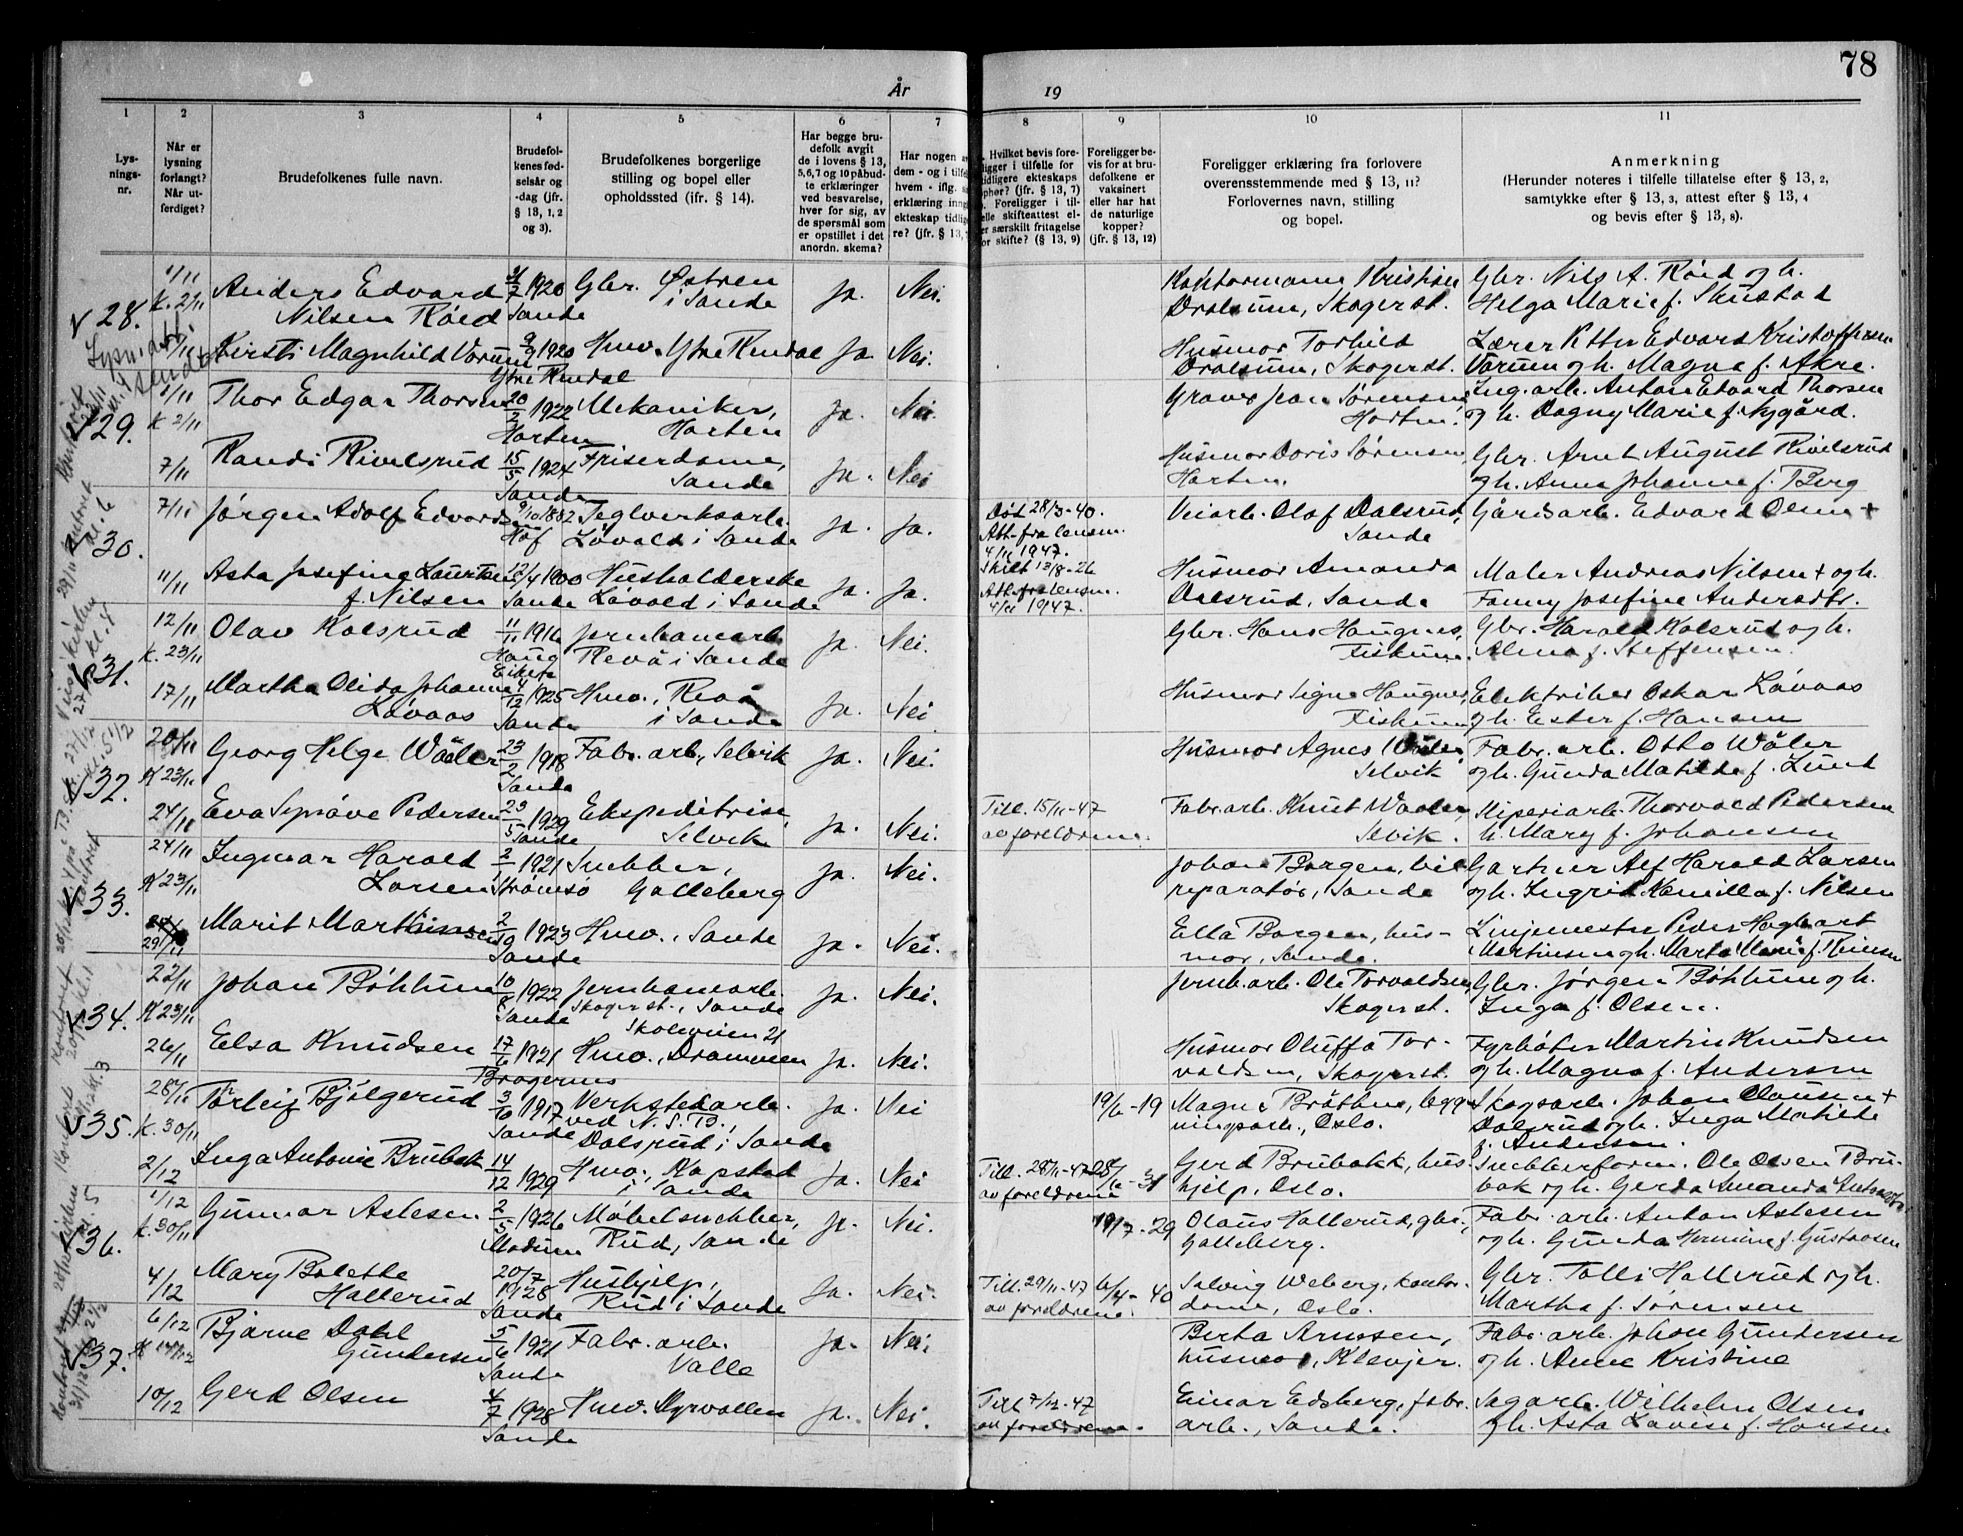 78
År 19
1 2 3 4 5 6 7 8 9 10 11
Lys-
nings-
nr.
Når er
lysning
forlangt?
Når ut-
ferdiget?
Brudefolkenes fulle navn.
Brudefol-
kenes fød-
selsår og
-dag (jfr.
§ 13, 1, 2
og 3).
Brudefolkenes borgerlige
stilling og bopel eller
opholdssted (ifr. § 14).
Har begge bru-
defolk avgit
de i lovens § 13,
5, 6, 7 og 10 påbud-
te erklæringer
ved besvarelse,
hver for sig, av
de spørsmål som
er opstillet i det
anordn. skema?
Har nogen av
dem - og i tilfe
hvem - iflg. s
erklæring inng
ekteskap tidlig
re? (jfr. § 13,
Hvilket bevis fore-
ligger i tilfelle for
tidligere ekteskaps
ophør? (jfr. § 13, 7)
Foreligger i til-
felle skifteattest el-
er særskilt fritagelse
for skifte? (§ 13, 9)
Foreligger be-
vis for at bru-
defolkene er
vaksinert
eller har hat
de naturlige
kopper?
(jfr. § 13, 12)
Foreligger erklæring fra forlovere
overensstemmende med § 13, 11?
Forlovernes navn, stilling
og bopel.
Anmerkning
(Herunder noteres i tilfelle tillatelse efter § 13, 2,
samtykke efter § 13, 3, attest efter § 13, 4
og bevis efter § 13, 8).
28. 1/11 K. 2/11 Anders Edvard 1920 Gbr. Østren Ja. Nei. Kristian Gbr. Nils A. Röed og h.
Nilsen Röed Sande i Sande Skogerst. Helga Marie f. Skustad
Kirsti Magnhild Vorum 1920 Hmv. Ytre Rendal Ja. Nei. Husmor Torhild Lærer Petter Edvard Kristoffersen
Ytre Rendal Skogerst. Vorum og h. Magna f. Akre.
29. K 2/11 Thor Edgar Thorsen 20/2 1922 Mekaniker, Ja. Nei. Sørensen Ing. arb. Anton Edvard Thorsen
Horten Horten Horten. og h. Dagny Marie f. Nygård.
7/11 Randi Rivelsrud 15/5 1924 Friserdame, Ja. Nei Husmor Doris Sørensen Gbr. Arnt August Rivelsrud
Sande Sande Horten. og h. Anna Johanne f. Berg
30. 7/11 Jørgen Adolf Edvardsen 9/10 1882 Teglverksarb. Ja. Ja. Død 28/3-40. Veiarb. Olaf Dalsrud, Gårdsarb. Edvard Olsen +
Hof Løvold i Sande Att. fra lensm. 4/11 1947. Sande
11/11 Asta Josefine Lauritsen 12/4 1900 Husholderske Ja. Ja. Skilt 13/8-26 Husmor Amanda Maler Andreas Nilsen + og h.
f. Nilsen Sande Løvold i Sande Att. fra lensm. 4/11 1947. Dalsrud, Sande Fanny Josefine Andersdtr.
31. 12/11 K. 23/11 Olav Kolsrud 11/11 1916 Jernbanearb. Ja. Nei. Gbr. Hans Haugnes, Gbr. Harald Kolsrud og h.
Haug Eiker Revå i Sande Fiskum. Alma f. Steffensen.
17/11 Martha Olida Johanne 4/12 1925 Hmv., Revå Ja. Nei Husmor Signe Haugnes, Elektriker Oskar Løvaas
Løvaas Sande i Sande Fiskum og h. Ester f. Hansen
32. 20/11 K 23/11 Georg Helge Wåler 23/2 1918 Fabr. arb., Selvik Ja. Nei. Husmor Agnes Waaler, Fabr. arb. Otto Wåler
Sande Selvik og h. Gunda Matilde f. Lund
24/11 Eva Synnøve Pedersen 23/5 1929 Ekspeditrise, Ja. Nei. Till. 15/11-47 Fabr. arb. Knut Waaler, Thorvald Pedersen
Sande Selvik av foreldrene. Selvik. h. Mary f. Johansen
33. 24/11 K 23/11 Ingvar Harald 1921 Snekker, Ja. Nei. Johan Borgen, bil Gartner Alf Harald Larsen
Larsen Strømsø Galleberg reparatør, Sande og h. Ingrid Kamilla f. Nilsen
29/11 Marit Martinsen 2/9 1923 Hmv., Sande Ja. Nei. Ella Borgen, hus- Linjemester Peder Hagbart
Sande mor, Sande. Martinsen og h. Marta Marie f.
34. 22/11 K 23/11 Johan Bøhlum 10/8 1922 Jernbanearb. Ja. Nei. Jernb. arb. Ole Torvaldsen, Gbr. Jørgen Bøhlum og h.
Sande Skogerst., Sande Skogerst. Inga f. Olsen.
Skoleveien 21
26/11 Elsa Knudsen 17/6 1921 Hmv., Drammen Ja. Nei. Husmor Oluffa Tor- Fyrbøter Martin Knudsen
Bragernes valdsen, Skogerst. og h. Magna f. Andersen
35. 28/11 K. 30/11 Torleif Bjölgerud 3/6 1917 Verkstedarb. Ja. Nei 19/6-19 Magne Bråthen, bygg- Skogsarb. Johan Clausen +
Sande ved N. S. B., ningsarb., Oslo. Dalsrud og h. Inga Matilde
Dalsrud i Sande f. Andersen.
2/12 Inga Antonie Brubak 14/12 1929 Hmv., Kopstad Ja. Nei Till. 28/11-47 - 31 Gerd Brubakk, hus- Snekkerform. Ole Olsen Bru-
i Sande av foreldrene hjelp, Oslo. bak og h. Gerda Amanda
36. 1/12 K. 30/11 Gunnar Aslesen 2/5 1926 Møbelsnekker, Ja. Nei. 19/7-29 Olaus Hallerud, gbr., Fabr. arb. Anton Aslesen
Modum Rud, Sande Galleberg. og h. Gunda Hermine f. Gustavsen
4/12 Mary Bolette 20/7 1928 Hushjelp, Ja. Nei. Till. 29/11-47 6/4-40 Solveig Weberg, kontor- Gbr. Hallerud og h.
Hallerud Sande Rud i Sande av foreldrene. dame, Oslo. Martha f. Sørensen
37. 6/12 Bjarne Dahl 5/6 1921 Fabr. arb. Ja. Nei. Berta Arnesen, Fabr. arb. Johan Gundersen
Gundersen Sande Valle husmor, Klevjer. og h. Anne Kristine
10/12 Gerd Olsen 4/7 1928 Hmv. Dyrvollen Ja. Nei. Till 7/12-47 Einar Edsberg, fabr. Sagarb. Wilhelm Olsen
Sande av foreldrene. arb., Sande. og h. Asta Lovise f. Hansen